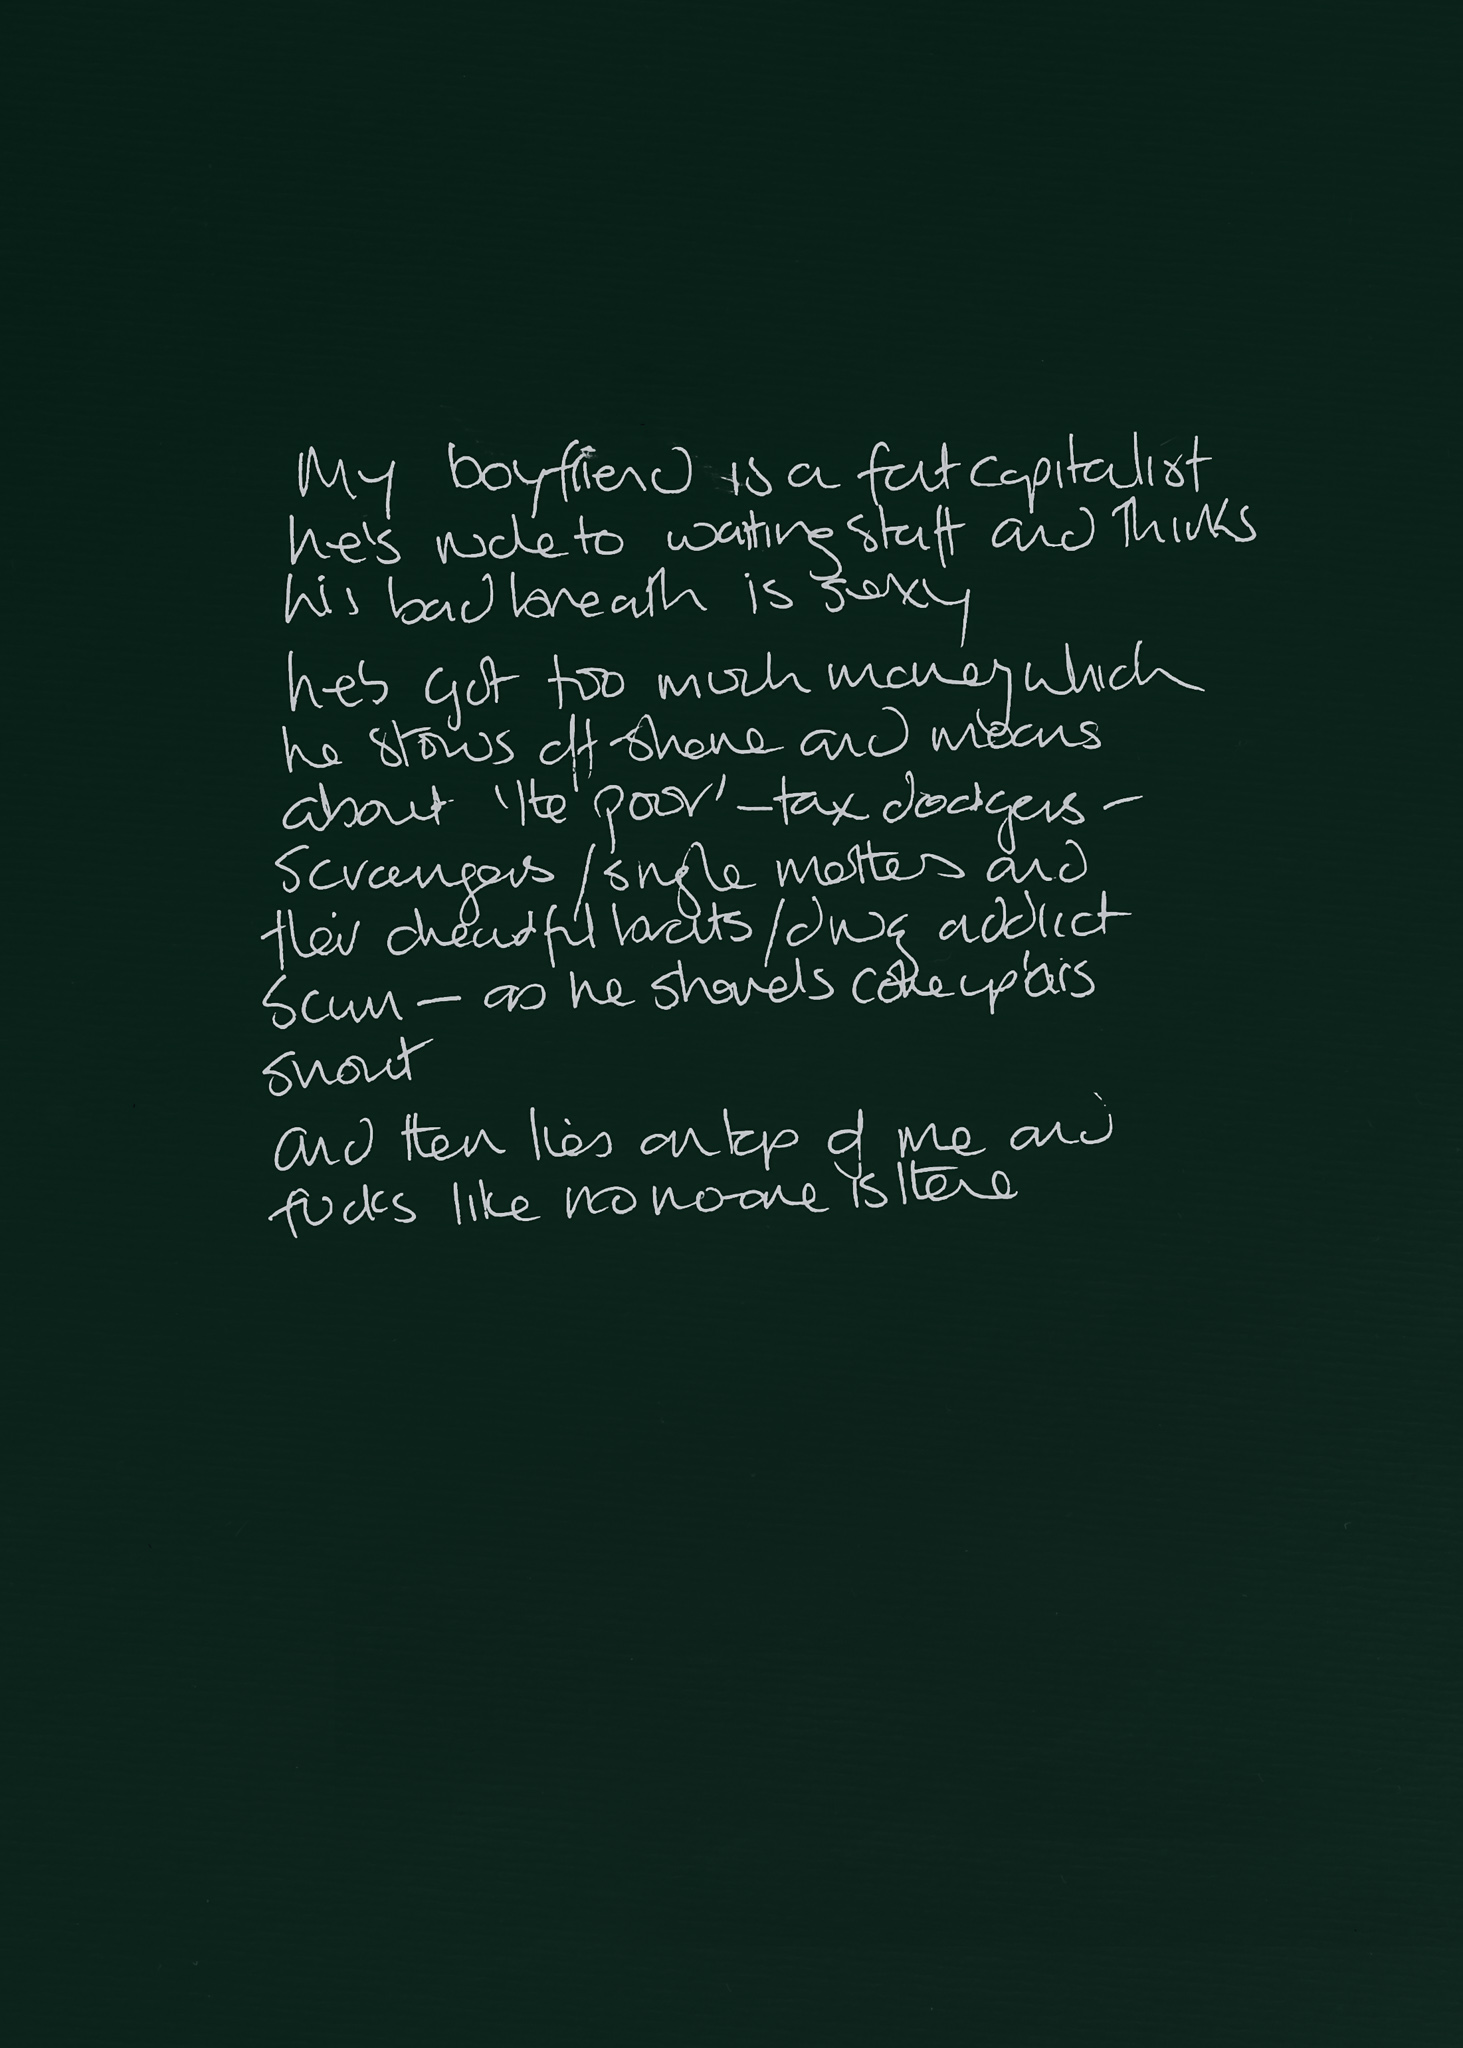 My boyfriend is a fat capitalist
he's rude to waiting staff and thinks
his bad breath is sexy
he's got too much money which
he stows off-shore and moans
about 'the poor' – tax dodgers –
scroungers / single mothers and
their dreadful brats / drug addict
scum – as he shovels coke up his
snout
and then lies on top of me and
fucks like no no-one is there